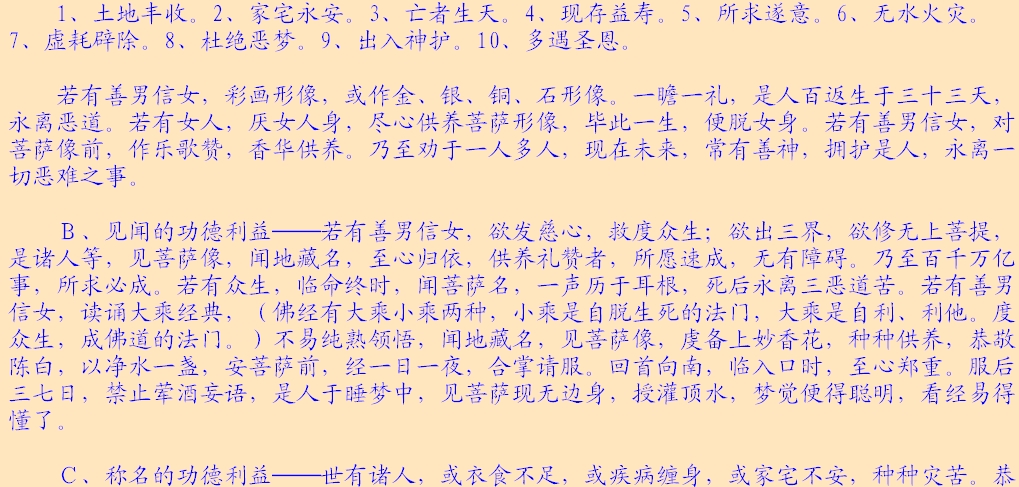 1、土地丰收。2、家宅永安。3、亡者生天。4、现存益寿。5、所求遂意。6、无水火灾。
7、虚耗辟除。8、杜绝恶梦。9、出入神护。10、多遇圣恩。
若有善男信女，彩画形像，或作金、银、铜、石形像。一瞻一礼，是人百返生于三十三天，
永离恶道。若有女人，厌女人身，尽心供养菩萨形像，毕此一生，便脱女身。若有善男信女，对
菩萨像前，作乐歌赞，香华供养。乃至劝于一人多人，现在未来，常有善神，拥护是人，永离一
切恶难之事。
B、见闻的功德利益——若有善男信女，欲发慈心，救度众生；欲出三界，欲修无上菩提，
是诸人等，见菩萨像，闻地藏名，至心归依，供养礼赞者，所愿速成，无有障碍。乃至百千万亿
事，所求必成。若有众生，临命终时，闻菩萨名，一声历于耳根，死后永离三恶道苦。若有善男
信女，读诵大乘经典，（佛经有大乘小乘两种，小乘是自脱生死的法门，大乘是自利、利他。度
众生，成佛道的法门。）不易纯熟领悟，闻地藏名，见菩萨像，虔备上妙香花，种种供养，恭敬
陈白，以净水一盏，安菩萨前，经一日一夜，合掌请服。回首向南，临入口时，至心郑重。服后
三七日，禁止荤酒妄语，是人于睡梦中，见菩萨现无边身，授灌顶水，梦觉便得聪明，看经易得
懂了。
C、称名的功德利益——世有诸人，或衣食不足，或疾病缠身，或家宅不安，种种灾苦。恭